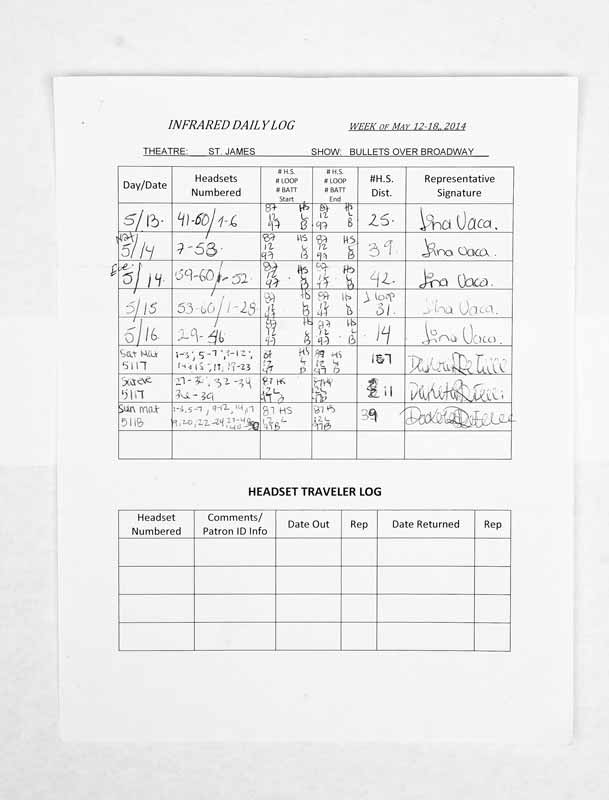 INFRARED DAILY LOG WEEK OF MAY 12-18, 2014
THEATRE: ST. JAMES SHOW: BULLETS OVER BROADWAY
Day/Date Headsets Numbered # H.S. # LOOP # BATT Start # H.S. # LOOP # BATT End #H.S. Dist. Representative Signature
5/13. 41-60/1-6 87 HS 12 L 47 B 87 HS 12 L 47 B 25. Lina Vaca.
Mat 5/14 7-53. 87 HS 12 L 47 B 87 HS 12 L 47 B 39. Lina Vaca.
Eve. 5/14. 59-60/1-52. 87 HS 12 L 47 B 87 HS L 47 B 42. Lina Vaca.
5/15 53-60/1-28 87 HS 12 L 47 B 87 HS 12 L 47 B 1 loop 31. Lina Vaca.
5/16. 29-46 87 HS 12 L 47 B 87 HS 12 L 47 B 14 Lina Vaca.
Sat Mat 5/17 1-3, 5-7, 9-12, 19-23 HS 12 L 47 B 87 HS 12 L 47 B
5/17 32-34 87 HS 12L 11
Sun mat 5/18 1-6, 9-12, 19, 20, 22-24, 87 HS 12 L 47B 87 H 12 L 47B 39
HEADSET TRAVELER LOG
Headset Numbered Comments/ Patron ID Info Date Out Rep Date Returned Rep